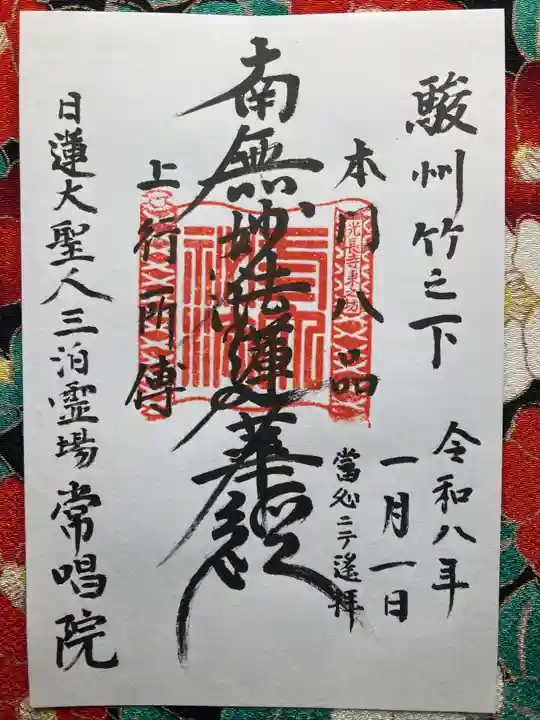 駿州竹之下
令和八年
一月一日
當処ニテ遙拝
本門八品
光長寺東之坊
南無妙法蓮華経
上行所傳
日蓮大聖人三泊霊場常唱院